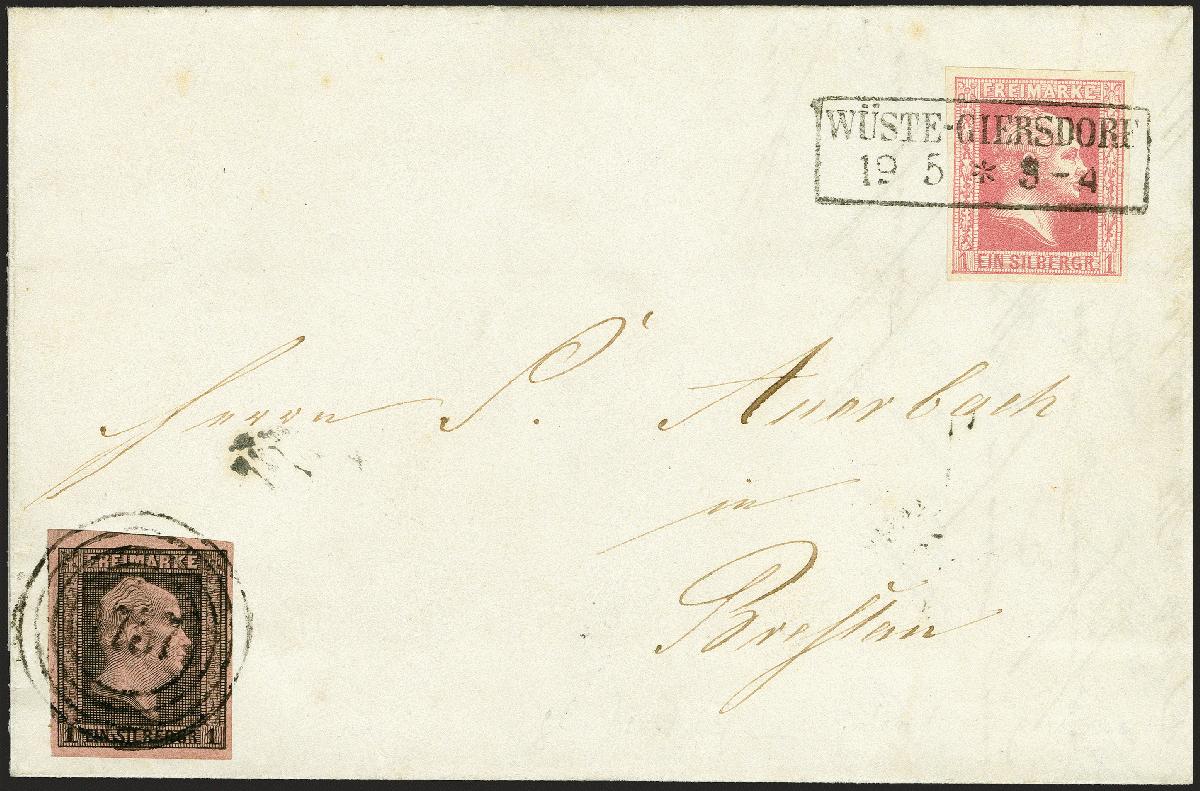 FREIMARKE
WÜSTE-GIERSDORF
19 5 * 3-4
1 EIN SILBERGR. 1
Herrn S. Auerbach
in
Breslau
FREIMARKE
1 EIN SILBERGR. 1